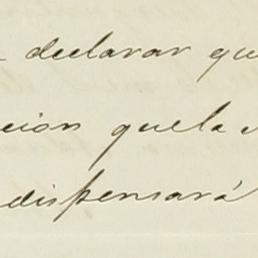 declarar qu
cion que la
dispensará